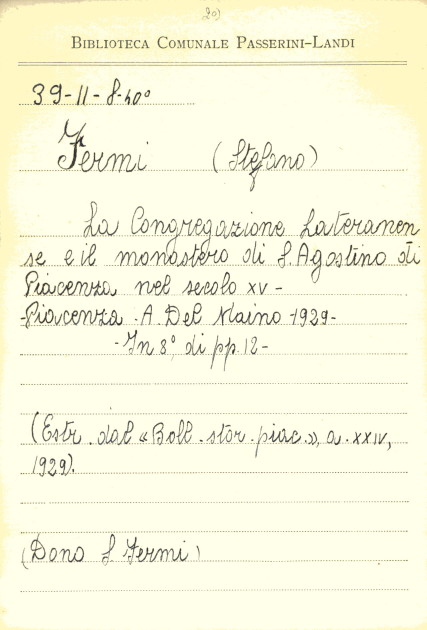 20)
BIBLIOTECA COMUNALE PASSERINI-LANDI
39-II-8-40°
Fermi (Stefano)
La Congregazione Lateranen
se e il monastero di S. Agostino di
Piacenza nel secolo XV-
-Piacenza. A. Del Maino-1929-
-In 8°, di pp. 12-
(Estr. dal «Boll. stor. piac.», a. XXIV,
1929).
(Dono S. Fermi)